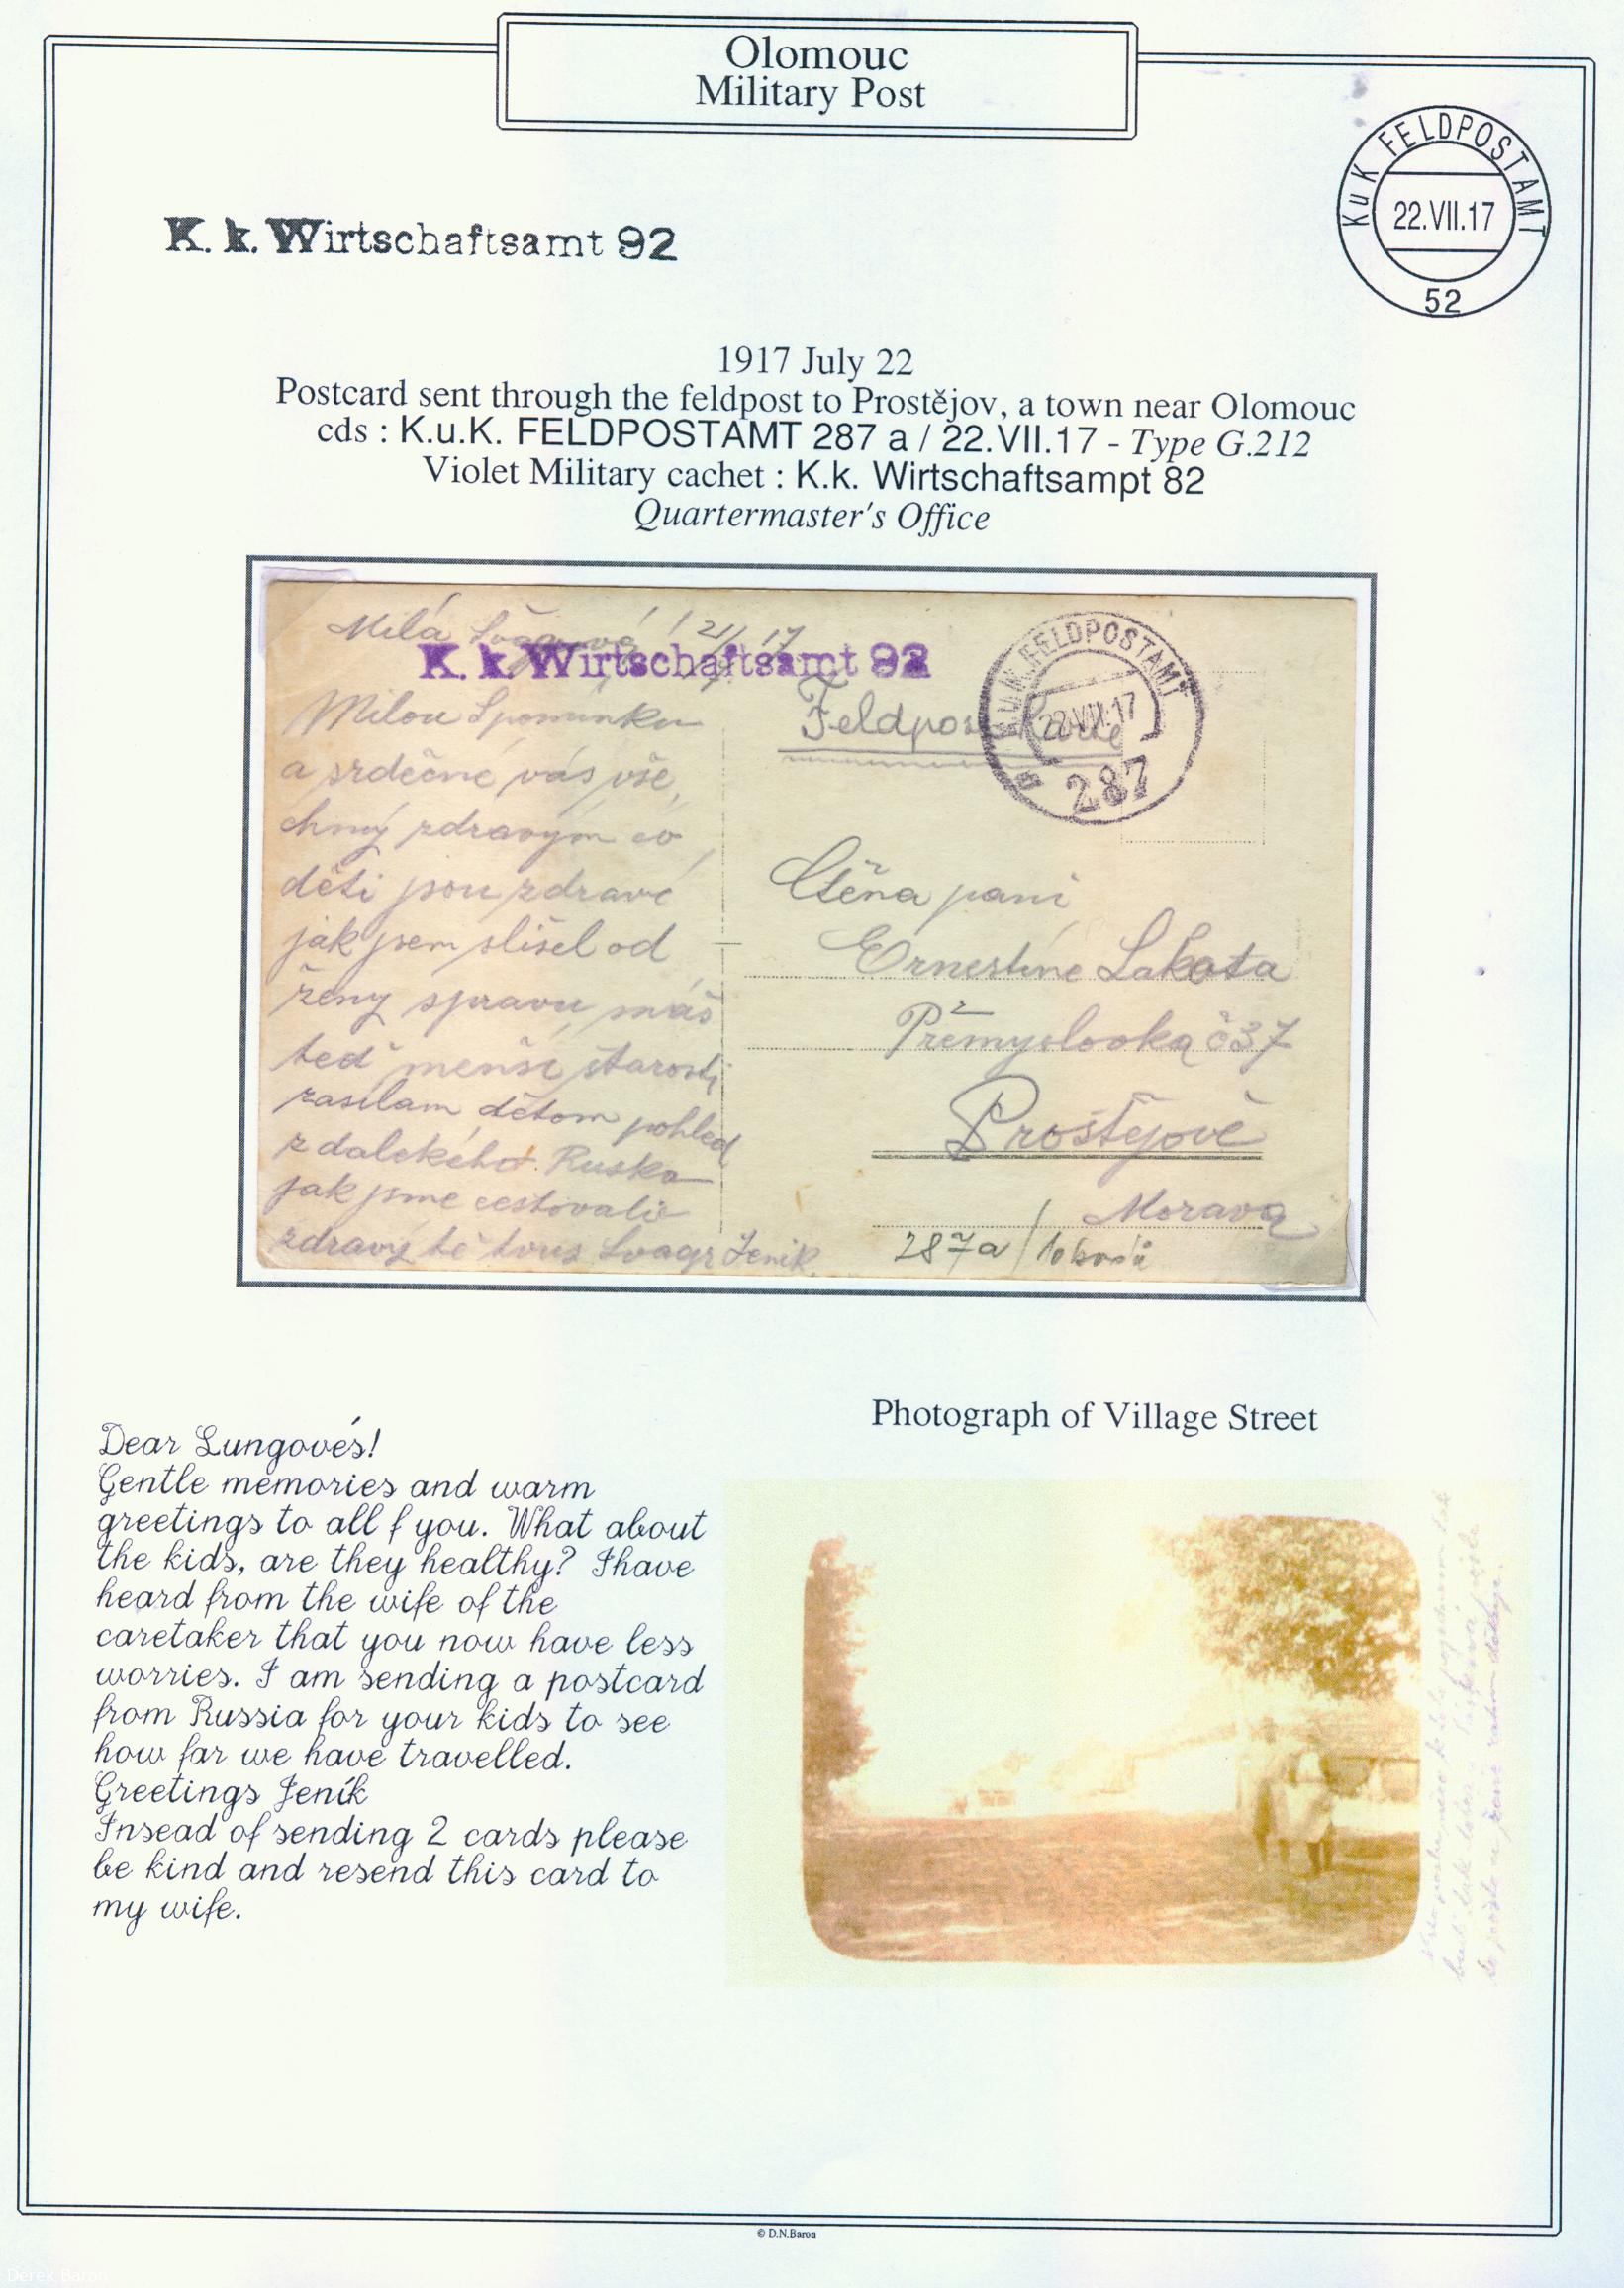 Olomouc
Military Post
K u K FELDPOSTAMT
22.VII.17
52
K. k. Wirtschaftsamt 92
1917 July 22
Postcard sent through the feldpost to Prostějov, a town near Olomouc
cds : K.u.K. FELDPOSTAMT 287 a / 22.VII.17 - Type G.212
Violet Military cachet : K.k. Wirtschaftsampt 82
Quartermaster's Office
Milá 21/ 17
K. k. Wirtschaftsamt 92
K.u.K. FELDPOSTAMT
22.VII.17
a 287
Milou Spominku
a srdečné vás vše,
chny zdravym co
děti jsou zdravé
jak jsem slišel od
ženy spravu máš
teď menši starosti
zasilam dětom pohled
z dalekého Ruska
jak jsme cestovali
zdravy tě Švagr Jenik
Feldpost
Ctěna pani
Ernestine Lakota
Přemyslovka č 37
Prostějově
Morava
287a /
Photograph of Village Street
Dear Lungovés!
Gentle memories and warm
greetings to all f you. What about
the kids, are they healthy? Ihave
heard from the wife of the
caretaker that you now have less
worries. I am sending a postcard
from Russia for your kids to see
how far we have travelled.
Greetings Jeník
Insead of sending 2 cards please
be kind and resend this card to
my wife.
© D.N.Baron
Derek Baron